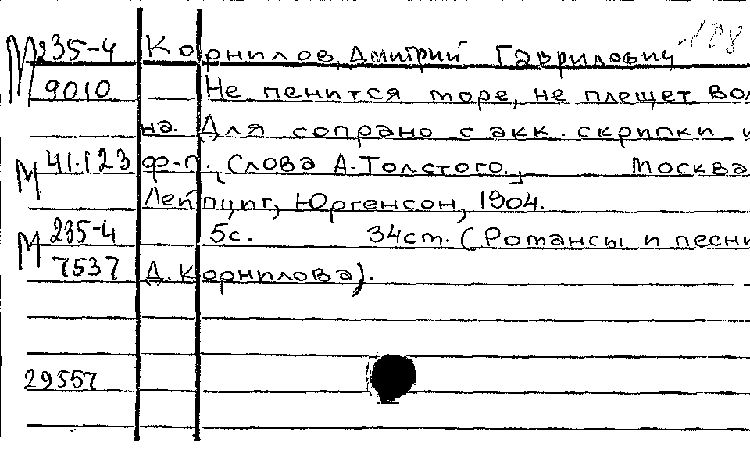 188
М 235-4 Корнилов, Дмитрий Гаврилович
9010 Не пенится море, не плещет вол
на. Для сопрано с акк. скрипки и
М 41.123 ф-п. [Слова А. Толстого.] Москва
Лейпциг, Юргенсон, 1904.
М 235-4 5с. 34см. (Романсы и песни
7537 Д. Корнилова).
29557